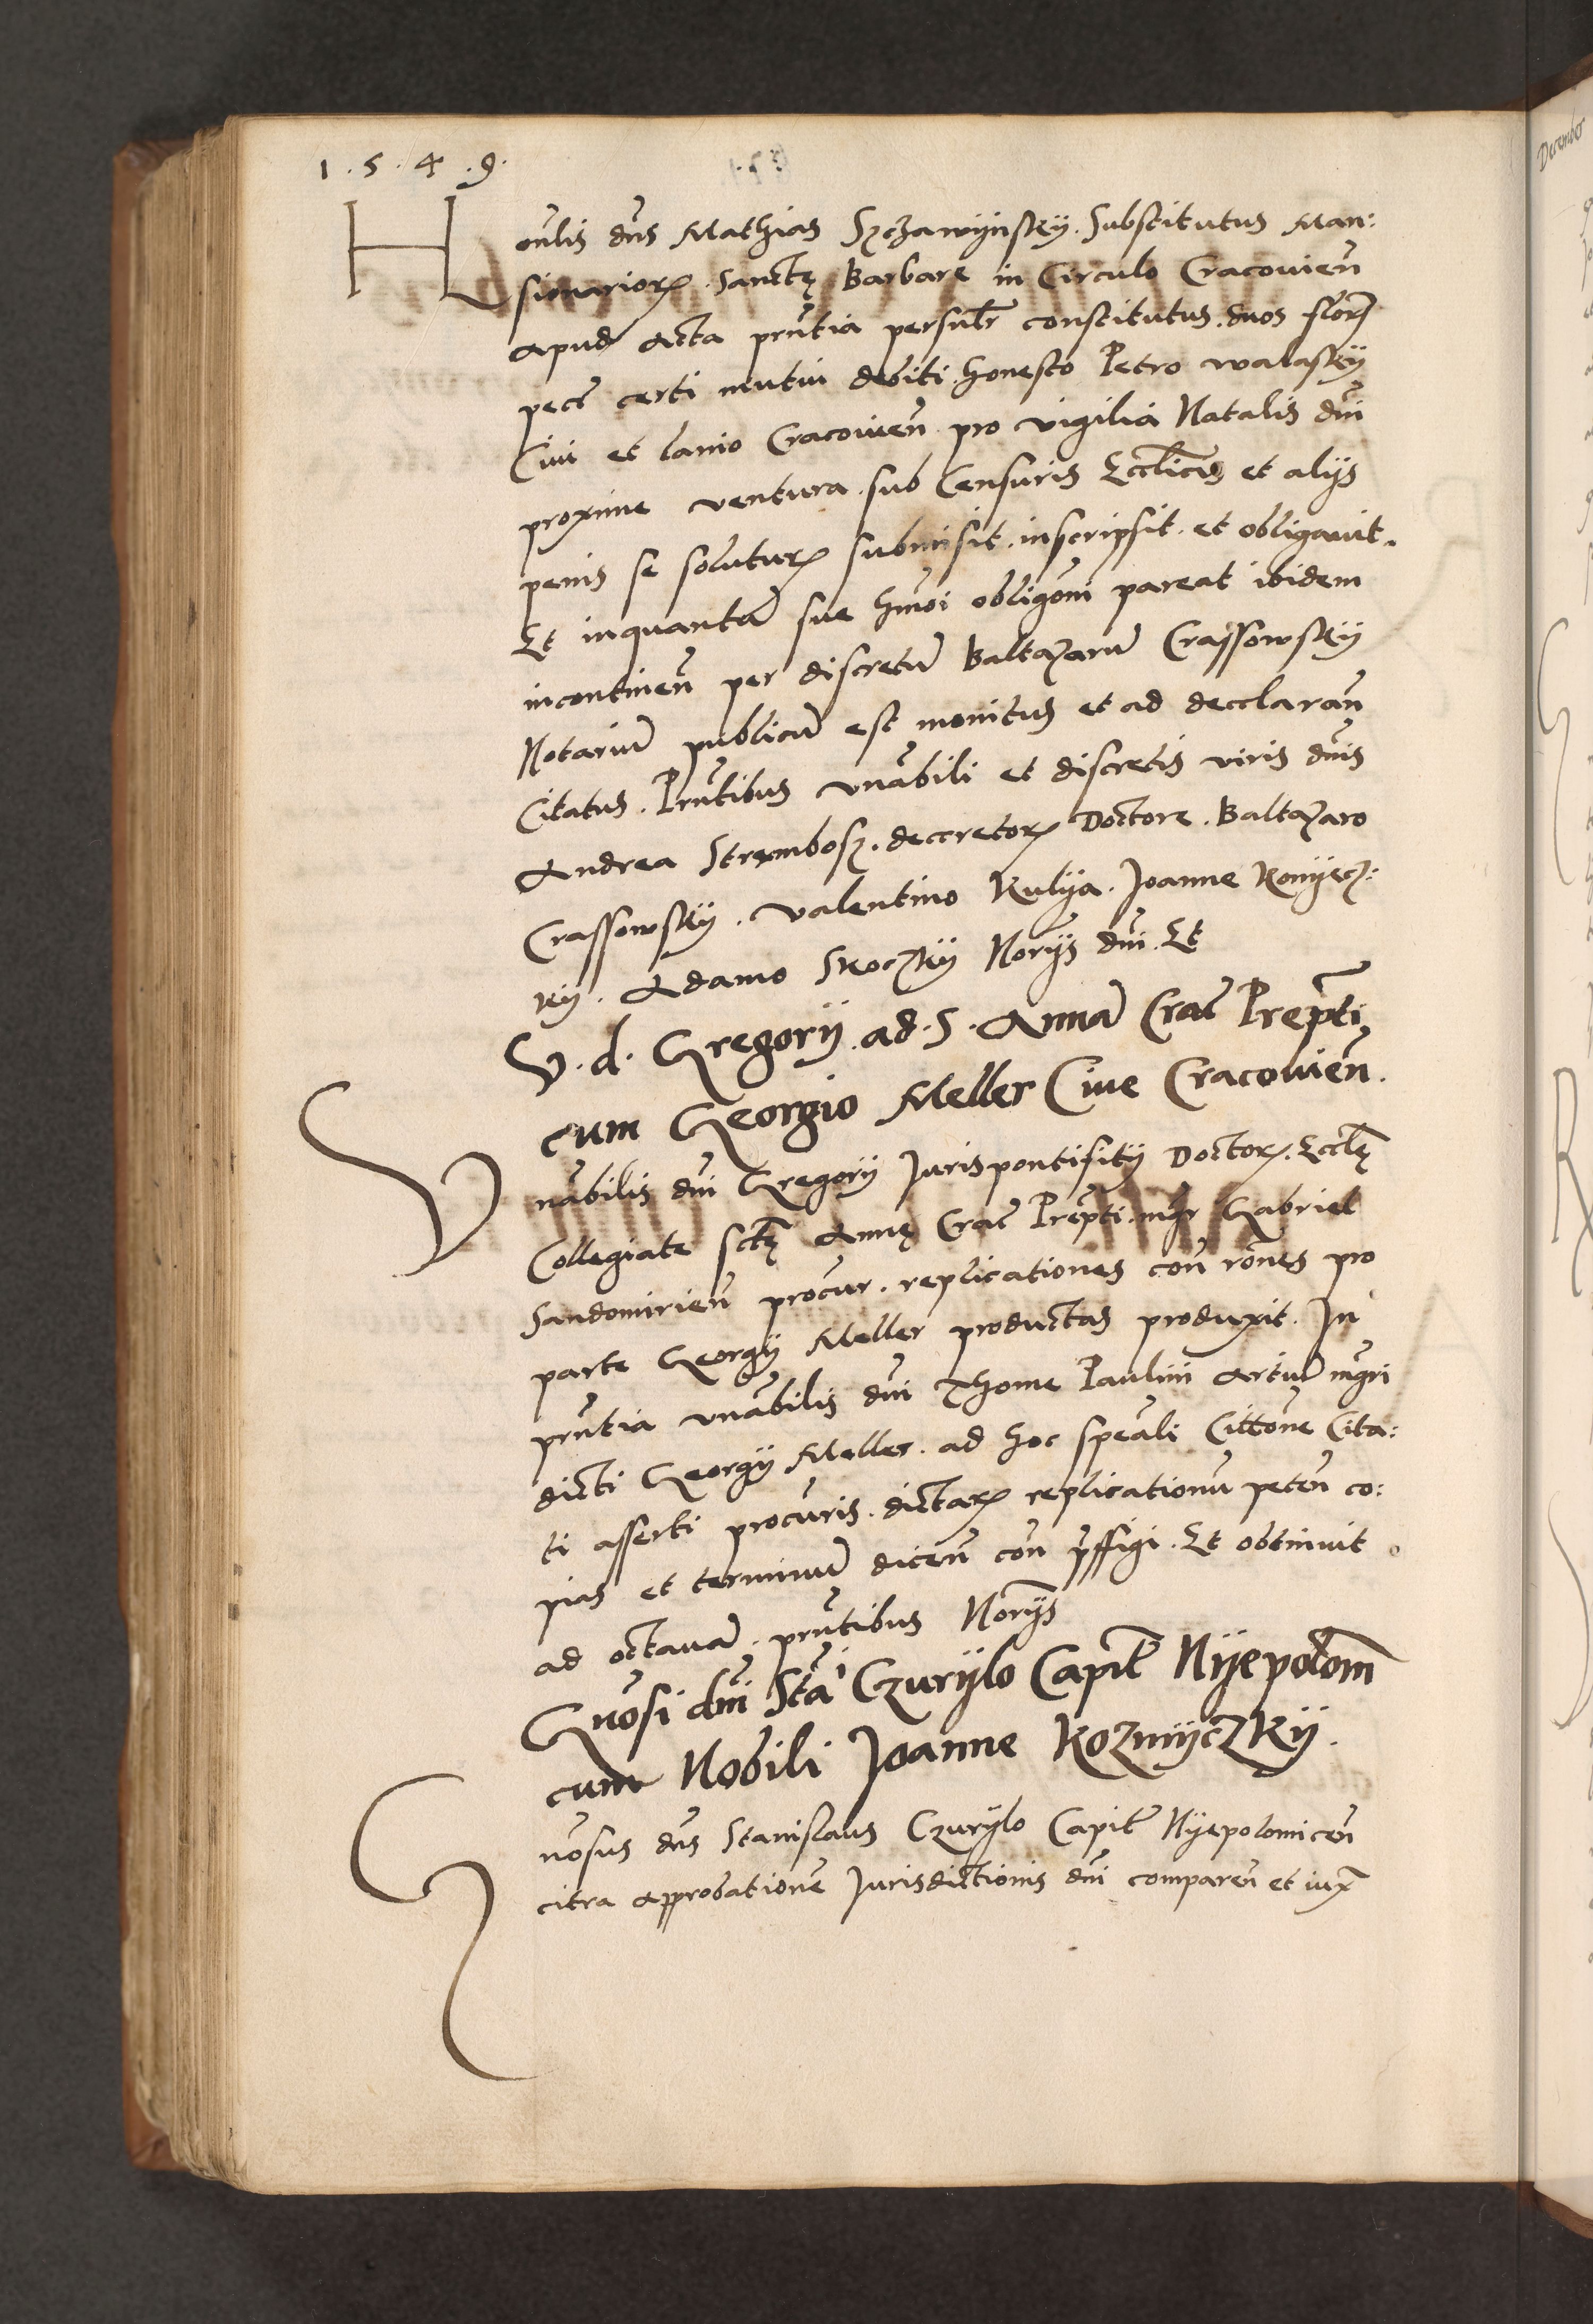 1.5.4.9.
Honlis dns Mathias Szczawynsky. Substitutus Man:
sionariorum. Sanctę Barbare in Circulo Cracovien
apud Acta pruntia persulr constitutus. duos flor
pecc certi mutui debiti. honesto Petro walasky
Civi et lanio Cracovien. pro vigilia Natalis dni
proxime ventura. sub Censuris Ecclicis et alijs
penis se soluturum submisit. inscripsit. et obligavit.
Et inquantu sue hmoi obligoni pareat ibidem
incontinen per discretu Baltazaru Crassowsky
Notariu publicu est monitus et ad decclaran
Citatus. Prntibus vnabili et discretis viris dnis
Andrea Strembosz. decretorum Doctore. Baltazaro
Crassowsky. valentino Kulya. Joanne Konyecz:
ky. Adamo Skoczky Norijs dni. Et
V. d. Gregorij ad. S. Anna Crac Prepti
cum Georgio Meller Cive Cracovien.
Vnabilis dni Gregorij Jurispontifitij Doctorum. Ecclę
Collegiate sctę Annę Crac Prepti. mgr Gabriel
Sandomirien procur. replicationes con rones pro
parte Georgij Meller productas produxit. In
pruntia vnabilis dni Thome Paulini Artiu mgri
dicti Georgij Meller. ad hoc speali Cittone Cita:
ti asserti procuris. dictarum replicationu peten co:
pias et terminu dicen con prffigi. Et obtinuit
ad octava. prntibus Norijs
Gnosi dni Sta Czurylo Capit Nyepolom
cum Nobili Joanne Kozmyczky.
Gnosus dns Stanislaus Czurylo Capit Nyepolomicen
citra approbatione Jurisdictionis dni comparen et iux
December